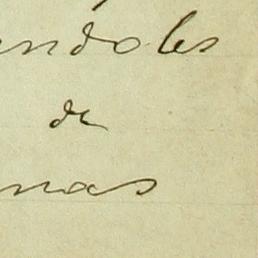 ndoles
de
nas